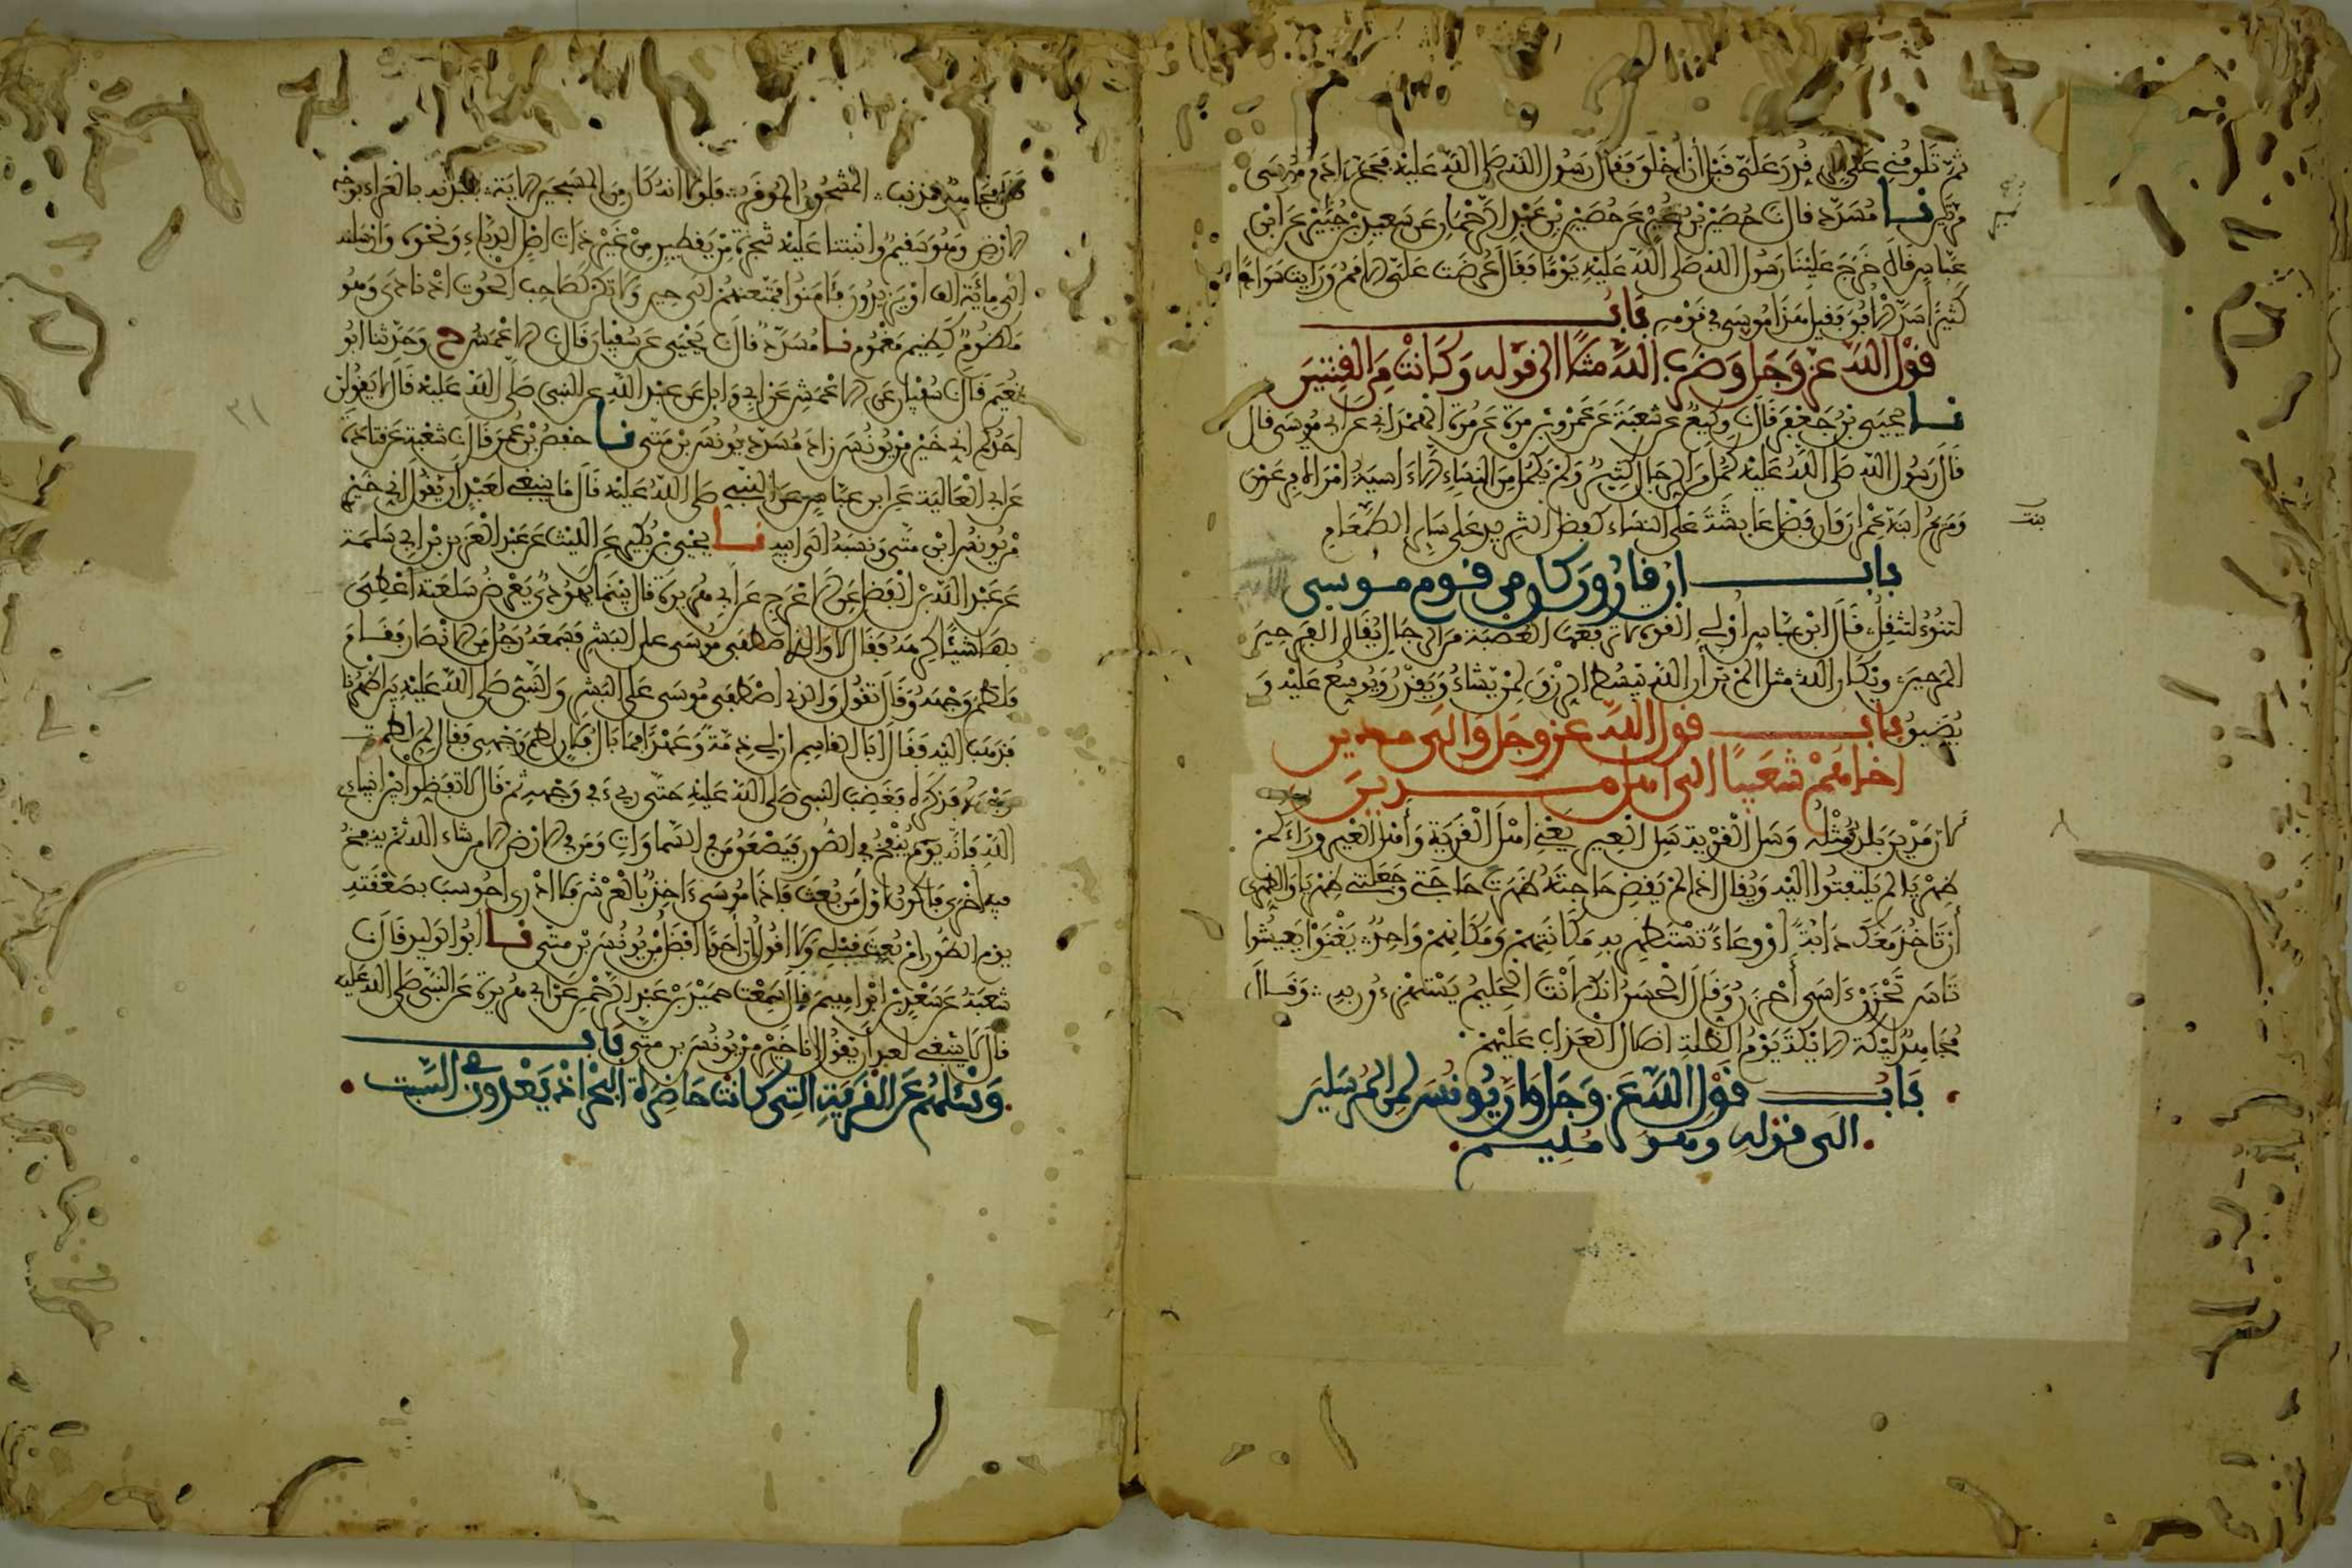 ثم تلومني على امر قدر علي قبل أن اخلق فقال رسول الله صلى الله عليه فحج ءادم موسى
مرتين نا مسدد قال حصين بن نمير عن حصين بن عبد الرحمان عن سعيد بن جبير عن ابن
عباس قال خرج علينا رسول الله صلى الله عليه يوما فقال عرضت علي الامم ورايت سوادا
كثيرا سد الافق فقيل هذا موسى في قومه باب
قول الله عز وجل وضرب الله مثلا الى قوله وكانت من القنتين
نا يحيى بن جعفر قال وكيع عن شعبة عن عمرو بن مرة عن مرة الهمداني عن ابي موسى قال
قال رسول الله صلى الله عليه كمل من الرجال كثير ولم يكمل من النساء الا ءاسية امراة فرعون
ومريم ابنة عمران وان فضل عايشة على النساء كفضل الثريد على ساير الطعام
بنت
باب ان قارون كان من قوم موسى
لتنوء لتثقل قال ابن عباس اولي القوة لا يرفعها العصبة من الرجال يقال الفرحين
المرحين ويكأن الله مثل الم تر أن الله يبسط الرزق لمن يشاء ويقدر ويوسع عليه و
يضيق باب قول الله عز وجل والى مدين
اخاهم شعيبا الى اهل مدين
لان مدين بلد ومثله وسل القرية سل العير يعني اهل القرية وأهل العير وراءكم
ظهريا لم يلتفتوا اليه ويقال اذا لم يقض حاجته ظهرت حاجتي وجعلتني ظهريا والظهري
أن تاخذ معك دابة او وعاء تستظهر به مكانتهم ومكانهم واحد يغنوا يعيشوا
تاس تحزن ءاسى أحزن وقال الحسن انك لأنت الحليم يستهزءون به وقال
مجاهد ليكة الايكة يوم الظلة اضلال العذاب عليهم
باب قول الله عز وجل وان يونس لمن المرسلين
الى قوله وهو مليم
قال مجاهد مذنب المشحون الموقر فلولا انه كان من المسبحين الاية فنبذنه بالعراء بوجه
الارض وهو سقيم وانبتنا عليه شجرة من يقطين من غير ذات اصل الدباء ونحوه وارسلنه
الى ماية الف او يزيدون فأامنوا فمتعنهم الى حين ولا تكن كصاحب الحوت اذ نادى وهو
مكظوم كظيم مغموم نا مسدد قال يحيى عن سفيان قال الاعمش ح وحدثنا ابو
نعيم قال سفيان عن الاعمش عن ابي وايل عن عبد الله عن النبي صلى الله عليه قال لا يقولن
احدكم اني خير من يونس زاد مسدد يونس بن متى نا حفص بن عمر قال شعبة عن قتادة
عن ابي العالية عن ابن عباس عن النبي صلى الله عليه قال ما ينبغي لعبد أن يقول اني خير
من يونس ابن متى ونسبه الى ابيه نا يحيى بن بكير عن الليث عن عبد العزيز بن ابي سلمة
عن عبد الله بن الفضل عن الاعرج عن ابي هريرة قال بينما يهودي يعرض سلعته اعطي
بها شيئا كرهه فقال لا والذي اصطفى موسى على البشر فسمعه رجل من الانصار فقام
فلطم وجهه وقال تقول والذي اصطفى موسى على البشر والنبي صلى الله عليه بين اظهرنا
فذهب اليه فقال ابا القاسم ان لي ذمة وعهدا فما بال فلان لطم وجهي فقال لم لطمت
وجهه فذكره فغضب النبي صلى الله عليه حتى ريء في وجهه ثم قال لا تفضلوا بين انبياء
الله فانه يوم ينفخ في الصور فيصعق من في السماوات ومن في الارض الا من شاء الله ثم ينفخ
فيه اخرى فاكون اول من بعث فاذا موسى ءاخذ بالعرش فلا ادري احوسب بصعقته
يوم الطور ام بعث قبلي ولا اقول ان احدا افضل من يونس بن متى نا ابو الوليد قال
شعبة عن سعد بن ابراهيم قال سمعت حميد بن عبد الرحمن عن ابي هريرة عن النبي صلى الله عليه
قال لا ينبغي لعبد أن يقول انا خير من يونس بن متى باب
وسئلهم عن القرية التي كانت حاضرة البحر اذ يعدون في السبت